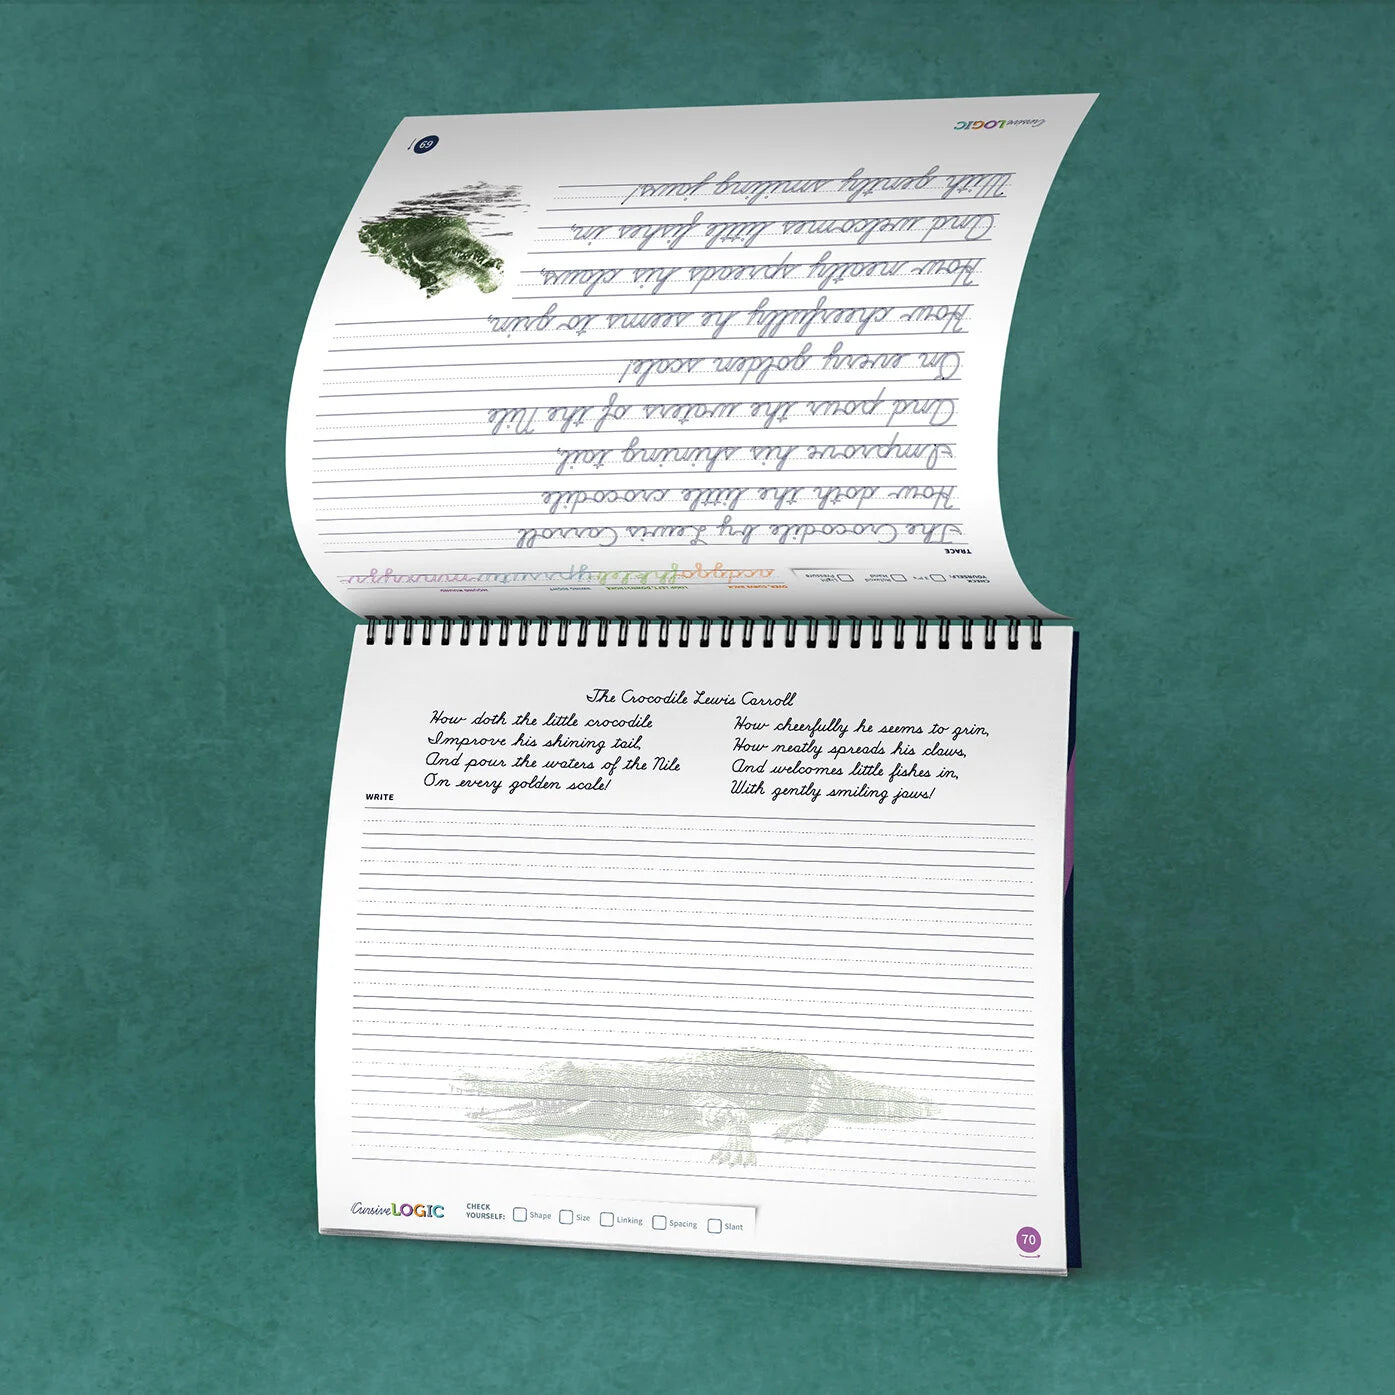 CursiveLOGIC
69
With gently smiling jaws!
And welcomes little fishes in,
How neatly spreads his claws,
How cheerfully he seems to grin,
On every golden scale!
And pour the waters of the Nile
Improve his shining tail,
How doth the little crocodile
The Crocodile by Lewis Carroll
TRACE
CHECK YOURSELF: 3 P's Relaxed Hand Light Pressure
OVER CURVE BACK LOOP LEFT DOWNSTROKE SWING RIGHT MOUND ROUND
The Crocodile Lewis Carroll
How doth the little crocodile
Improve his shining tail,
And pour the waters of the Nile
On every golden scale!
How cheerfully he seems to grin,
How neatly spreads his claws,
And welcomes little fishes in,
With gently smiling jaws!
WRITE
CursiveLOGIC
CHECK YOURSELF: Shape Size Linking Spacing Slant
70